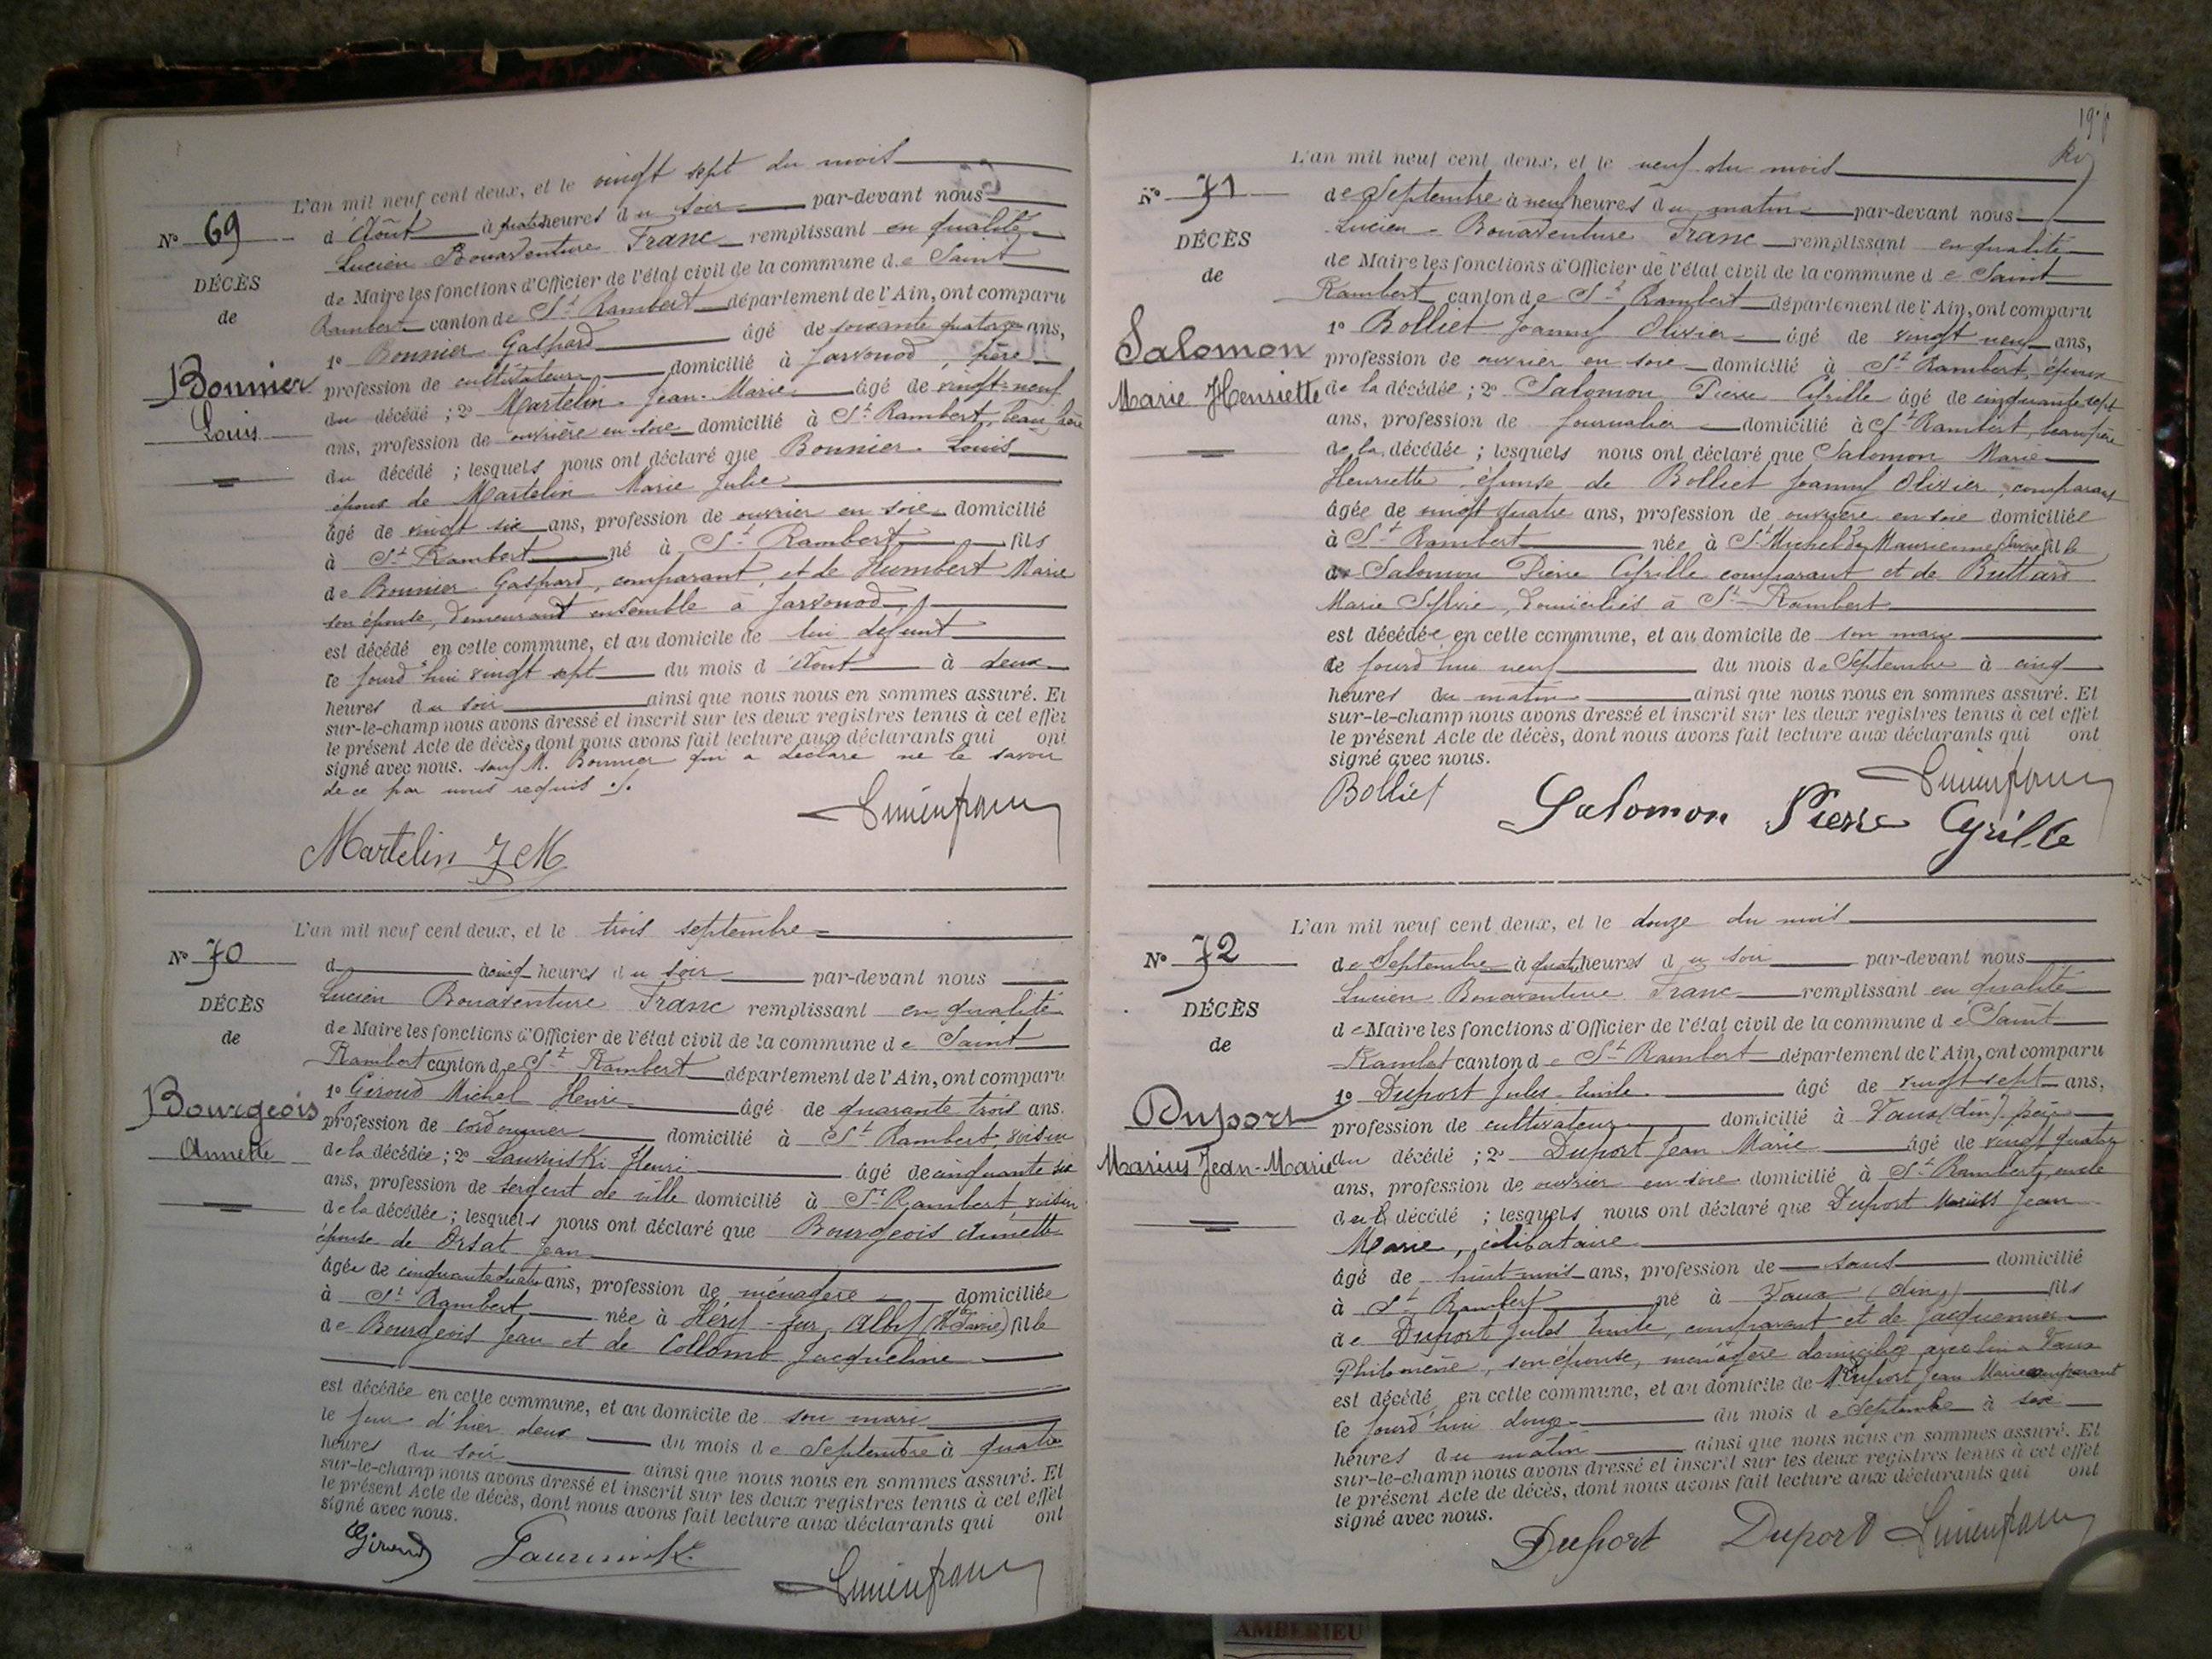 L'an mil neuf cent deux, et le vingt sept du mois
N° 69
d'Août à quatre heures du soir par-devant nous
Lucien Bonaventure Franc remplissant en qualité
DÉCÈS
de Maire les fonctions d'Officier de l'état civil de la commune de Saint
de
Rambert canton de St Rambert département de l'Ain, ont comparu
1° Bonnier Gaspard âgé de soixante quatorze ans,
Bonnier
profession de cultivateur domicilié à Javornod, père
Louis
du décédé ; 2° Martelin Jean-Marie âgé de vingt-neuf
ans, profession de ouvrière en soie domicilié à St Rambert, beau frère
du décédé ; lesquels nous ont déclaré que Bonnier Louis
époux de Martelin Marie Julie
âgé de vingt six ans, profession de ouvrier en soie domicilié
à St Rambert né à St Rambert fils
de Bonnier Gaspard, comparant, et de Humbert Marie
son épouse, demeurant ensemble à
est décédé en cette commune, et au domicile de lui défunt
le jourd'hui vingt sept du mois d'Août à deux
heures du soir ainsi que nous nous en sommes assuré. Et
sur-le-champ nous avons dressé et inscrit sur les deux registres tenus à cet effet
le présent Acte de décès, dont nous avons fait lecture aux déclarants qui ont
signé avec nous. sauf M. Bonnier qui a déclaré ne le savoir
de ce par nous requis ./.
Martelin J M
L'an mil neuf cent deux, et le trois septembre
N° 70
d à cinq heures du soir par-devant nous
Lucien Bonaventure Franc remplissant en qualité
DÉCÈS
de Maire les fonctions d'Officier de l'état civil de la commune de Saint
de
Rambert canton de St Rambert département de l'Ain, ont comparu
1° Giroud Michel Henri âgé de quarante trois ans.
Bourgeois
profession de cordonnier domicilié à St Rambert, voisin
Annette
de la décédée ; 2° Henri âgé de cinquante six
ans, profession de sergent de ville domicilié à St Rambert voisin
de la décédée ; lesquels nous ont déclaré que Bourgeois Annette
épouse de Orsat Jean
âgée de cinquante quatre ans, profession de ménagère domiciliée
à St Rambert née à Héry-sur-Alby (Hte Savoie) fille
de Bourgeois Jean et de Collomb Jacqueline
est décédée en cette commune, et au domicile de son mari
le jour d'hier deux du mois de Septembre à quatre
heures du soir ainsi que nous nous en sommes assuré. Et
sur-le-champ nous avons dressé et inscrit sur les deux registres tenus à cet effet
le présent Acte de décès, dont nous avons fait lecture aux déclarants qui ont
signé avec nous.
Giroud
L'an mil neuf cent deux, et le neuf du mois
N° 71
de Septembre à neuf heures du matin par-devant nous
DÉCÈS
Lucien Bonaventure Franc remplissant en qualité
de Maire les fonctions d'Officier de l'état civil de la commune de Saint
de
Rambert canton de St Rambert département de l'Ain, ont comparu
1° Bolliet Joanny Olivier âgé de vingt neuf ans,
Salomon
profession de ouvrier en soie domicilié à St Rambert, époux
Marie Henriette
de la décédée ; 2° Salomon Pierre Cyrille âgé de cinquante sept
ans, profession de journalier domicilié à St Rambert, beau père
de la décédée ; lesquels nous ont déclaré que Salomon Marie
Henriette épouse de Bolliet Joanny Olivier, comparant
âgée de vingt quatre ans, profession de ouvrière en soie domiciliée
à St Rambert née à St Michel de Maurienne (Savoie) fille
de Salomon Pierre Cyrille comparant et de Buttard
Marie Sylvie, domiciliés à St Rambert
est décédée en cette commune, et au domicile de son mari
le jourd'hui neuf du mois de Septembre à cinq
heures du matin ainsi que nous nous en sommes assuré. Et
sur-le-champ nous avons dressé et inscrit sur les deux registres tenus à cet effet
le présent Acte de décès, dont nous avons fait lecture aux déclarants qui ont
signé avec nous.
Bolliet
Salomon Pierre Cyrille
L'an mil neuf cent deux, et le douze du mois
N° 72
de Septembre à quatre heures du soir par-devant nous
Lucien Bonaventure Franc remplissant en qualité
DÉCÈS
de Maire les fonctions d'Officier de l'état civil de la commune de Saint
de
Rambert canton de St Rambert département de l'Ain, ont comparu
1° Duport Jules Emile âgé de vingt-sept ans,
Duport
profession de cultivateur domicilié à Vaux (Ain), père
Marius Jean-Marie
du décédé ; 2° Duport Jean Marie âgé de vingt quatre
ans, profession de ouvrier en soie domicilié à St Rambert, oncle
du décédé ; lesquels nous ont déclaré que Duport Marius Jean
Marie, célibataire
âgé de huit mois ans, profession de sans domicilié
à St Rambert né à Vaux (Ain) fils
de Duport Jules Emile, comparant et de
Philomène, son épouse, ménagère domiciliée avec lui à Vaux
est décédé en cette commune, et au domicile de Duport Jean Marie comparant
le jourd'hui douze du mois de Septembre à six
heures du matin ainsi que nous nous en sommes assuré. Et
sur-le-champ nous avons dressé et inscrit sur les deux registres tenus à cet effet
le présent Acte de décès, dont nous avons fait lecture aux déclarants qui ont
signé avec nous.
Duport Duport
AMBERIEU